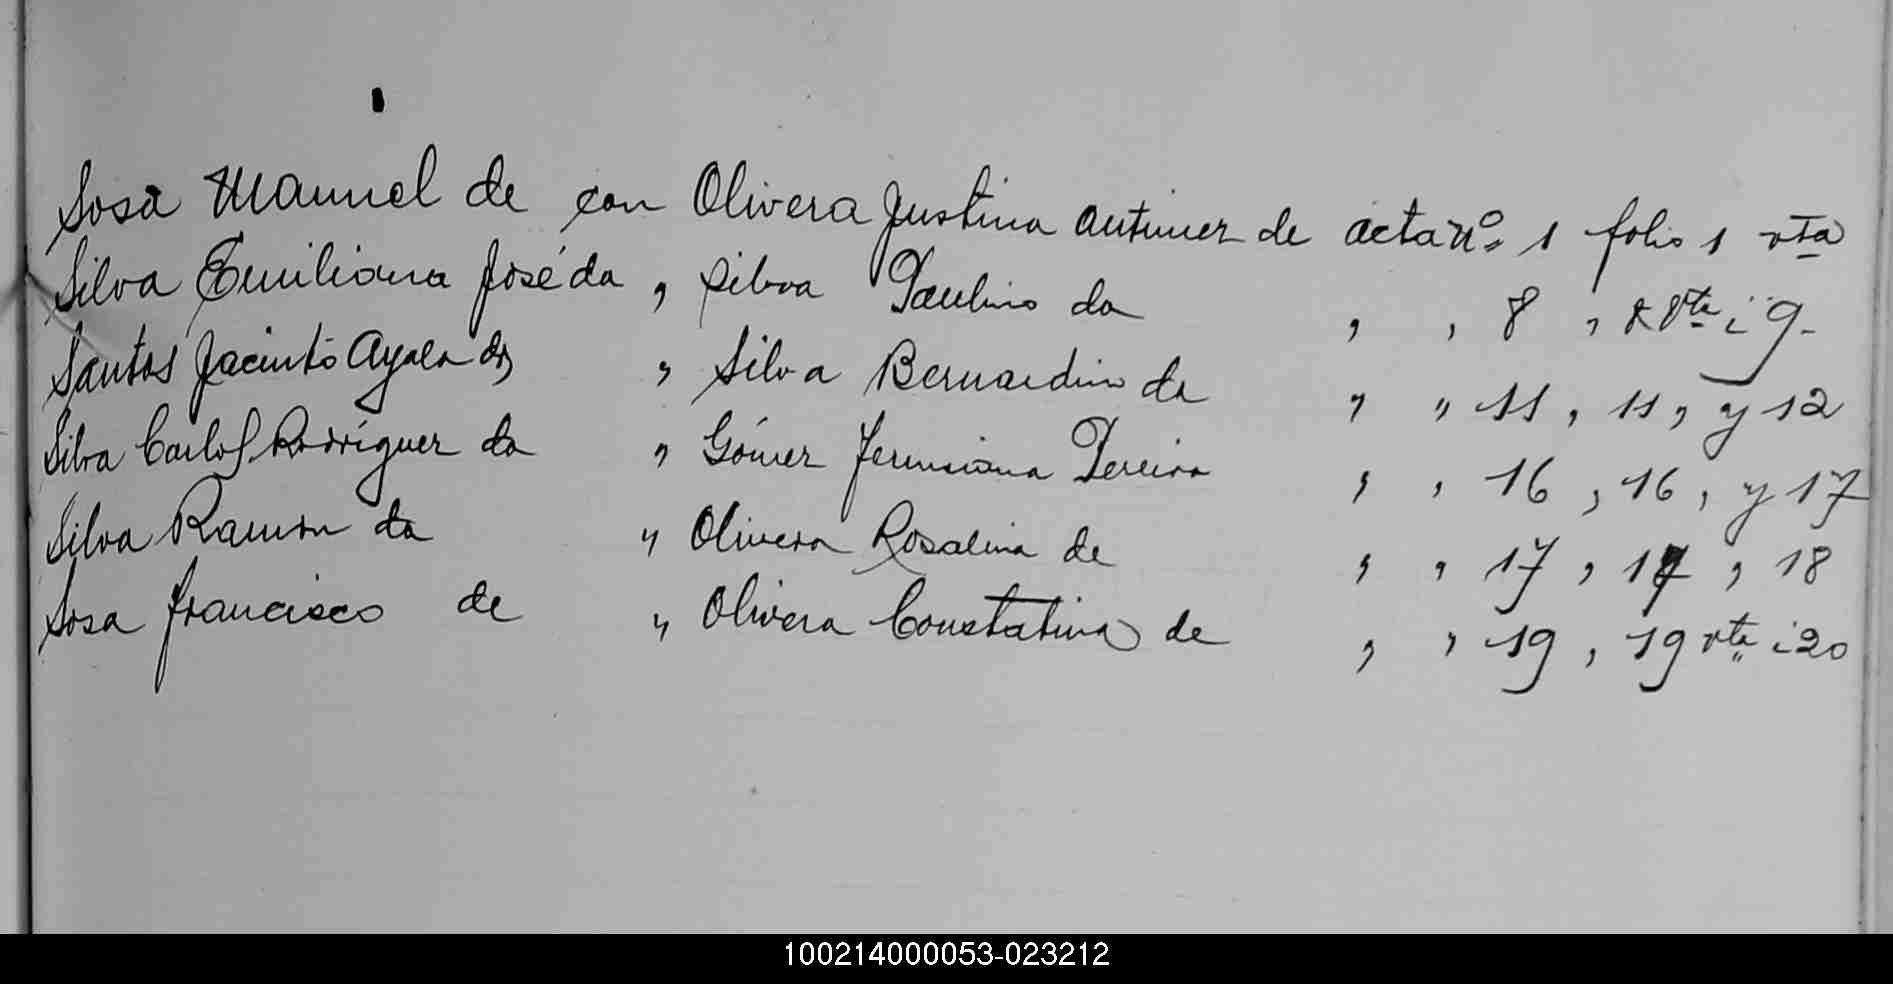 Sosa Manuel de con Olivera Justina Antunez de acta nº 1 folio 1 vta
Silva Emiliana José da " Silva Paulino da " " 8 " 8 vta i 9-
Santos Jacinto Ayala dos " Silva Bernardino da " " 11 , 11 , y 12
Silva Carlos Rodríguez da " Gómez Fermiana Pereira " " 16 , 16 , y 17
Silva Ramon da " Olivera Rosalina de " " 17 , 17 , 18
Sosa Francisco de " Olivera Constatina de " " 19 , 19 vta i 20
100214000053-023212